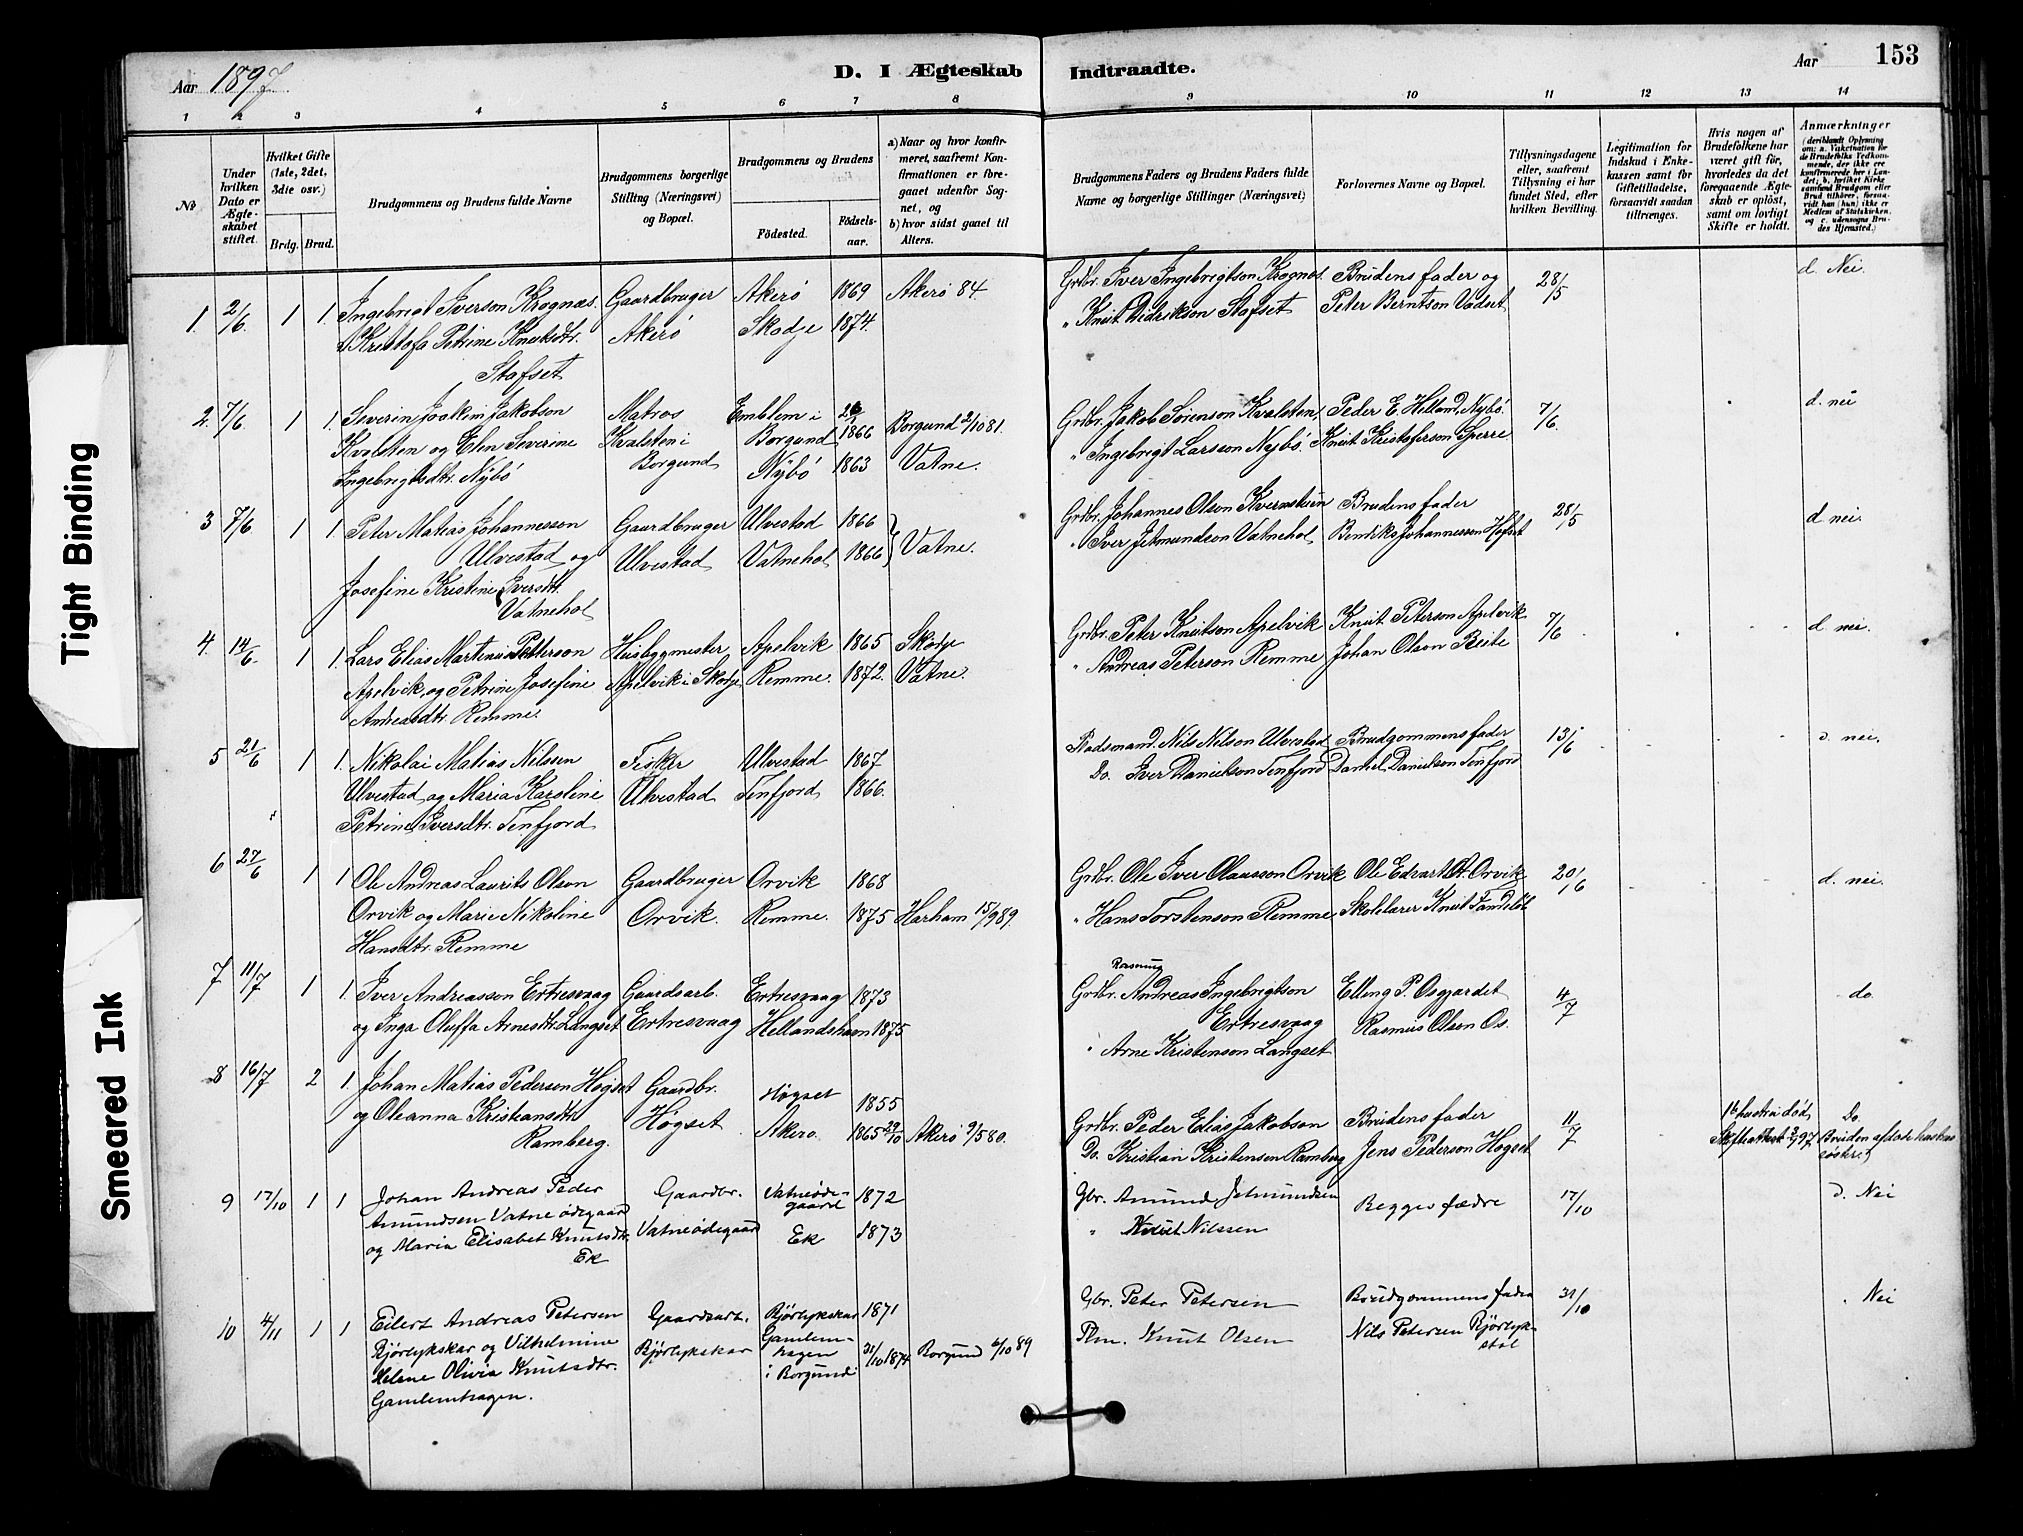 Aar 1897.
D. I Ægteskab Indtraadte.
Aar
153
1 2 3 4 5 6 7 8 9 10 11 12 13 14
No.
Under hvilken Dato er Ægteskabet stiftet.
Hvilket Gifte (1ste, 2det, 3die osv.)
Brdg. Brud.
Brudgommens og Brudens fulde Navne
Brudgommens borgerlige Stilling (Næringsvei) og Bopæl.
Brudgommens og Brudens
Födested.
Födselsaar.
a) Naar og hvor konfirmeret, saafremt Konfirmationen er foregaaet udenfor Sognet, og
b) hvor sidst gaaet til Alters.
Brudgommens Faders og Brudens Faders fulde Navne og borgerlige Stillinger (Næringsvei)
Forlovernes Navne og Bopæl.
Tillysningsdagene eller, saafremt Tillysning ei har fundet Sted, efter hvilken Bevilling.
Legitimation for Indskud i Enkekassen samt for Giftetilladelse, forsaavidt saadan tiltrenges.
Hvis nogen af Brudefolkene har været gift för, hvorledes da det foregaaende Ægteskab er oplöst, samt om lovligt Skifte er holdt.
Anmærkninger
(deriblandt Oplysning om: a. Vakcination for de Brudefolks Vedkommende, der ikke ere konfirmerede her i Landet; b. hvilket Kirkesamfund Brudgom eller Brud tilhörer, forsaavidt han (hun) ikke er Medlem af Statskirken, og c. udensogns Brudes Hjemsted.)
1. 2/6. 1 1. Ingebrigt Iverson Krognæs Gaardbruger Akerö 1869 Akerö 84. Grdbr. Iver Ingebrigtson Krognæs Brudens fader og 28/5 d. Nei.
Kristofa Petrine Knutsdtr. Akerö Skodje 1874. " Knut Didrikson Stafset Peter Berntson Vadset
Stafset
2. 7/6. 1 1. Severin Joakim Jakobson Matros Emblem i 1866 Borgund 2/10 81. Grdbr. Jakob Sörenson Kvalsten Peder E. Helland, Nybö. 7/6. d. nei
Kvalsten og Elen Severine Kvalsten i Borgund Vatne. " Ingebrigt Larsson Nybö. Knut Kristoferson Sperre
Ingebrigtsdtr. Nybö Borgund Nybö 1863
3 7/6. 1 1. Peter Matias Johannesson Gaardbruger Ulvestad 1866 Vatne. Grdbr. Johannes Olson Kvernstein Brudens fader 28/5 d. nei.
Ulvestad og Ulvestad Vatnehol 1866 " Iver Jetmundson Vatnehol Bendiks Johannesson Hofset
Josefine Kristine Iversdtr.
Vatnehol
4. 14/6. 1 1. Lars Elias Martinus Petterson Husbygmester Apelvik 1865 Skodje Grdbr. Peter Knutson Apelvik Knut Peterson Apelvik 7/6 d. nei.
Apelvik, og Petrine Josefine Apelvik i Skodje Remme. 1872. Vatne. " Andreas Peterson Remme Johan Olson Beite
Andreasdtr. Remme.
5 21/6 1 1. Nikolai Matias Nilssen Fisker Ulvestad 1867 Pladsmand. Nils Nilson Ulvestad Brudgommens fader 13/6 d. nei.
Ulvestad og Maria Karoline Ulvestad Tenfjord 1866. Do. Iver Danielson Tenfjord Daniel Danielson Tenfjord
Petrine Iversdtr. Tenfjord
6 27/6 1 1 Ole Andreas Laurits Olson Gaardbruger Orvik 1868 Grdbr. Ole Iver Olausson Orvik Ole Edvart O. Orvik 20/6 d. nei.
Orvik og Marie Nikoline Orvik. Remme. 1875 Harham 15/9 89. " Hans Torstenson Remme Skolelærer Knut
Hansdtr. Remme
7 11/7 1 1. Iver Andreasson Ertresvaag Gaardsarb. Ertresvaag 1873 Grdbr. Andreas Ingebrigtson Elling P. Osgjerdet 4/7 do.
og Inga Oluffa Arnesdtr. Langset Ertresvaag Hellandshavn 1875 Ertresvaag Rasmus Olsen Os.
" Arne Kristenson Langset
8 16/7 2 1. Johan Matias Pederson Högset Gaardbr. Högset 1855 Grdbr. Peder Elias Jakobson Brudens fader 11/7
og Oleanna Kristiansdtr. Högset Akerö. 1865 29/10 Akerö 9/5 80. Do. Kristian Kristensen Ramberg Jens Pederson Högset
Ramberg.
hustru död Do.
Skifteattest 97 Bruden afdöde hustrus
söster.
9 17/10 1 1 Johan Andreas Peder Gaardbr. Vatneödegaard 1872 Gbr. Amund Jetmundsen Begges fædre 17/10 d. Nei
Amundsen Vatneödegaard Vatneödegaard Ek 1873 " Knut Nilssen
og Maria Elisabet Knutsdtr.
Ek
10 4/11 1 1 Eilert Andreas Petersen Gaardsarb. Bjørlykskar 1871 Gbr. Peter Petersen Brudgommens fader 31/10 Nei
Bjørlykskar og Vilhelmine Bjørlykskar Gamlemshagen 31/10 1874 Borgund 6/10 89 Plm. Knut Olsen Nils Petersen Bjørlykstöl
Helene Olivia Knutsdtr. i Borgund
Gamlemshagen.
Tight Binding
Smeared Ink